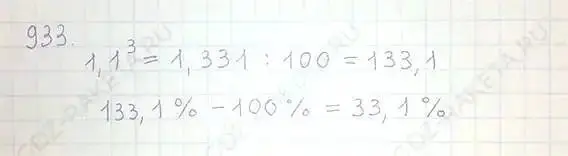 933.
1,1³ = 1,331 : 100 = 133,1
133,1 % - 100 % = 33,1 %